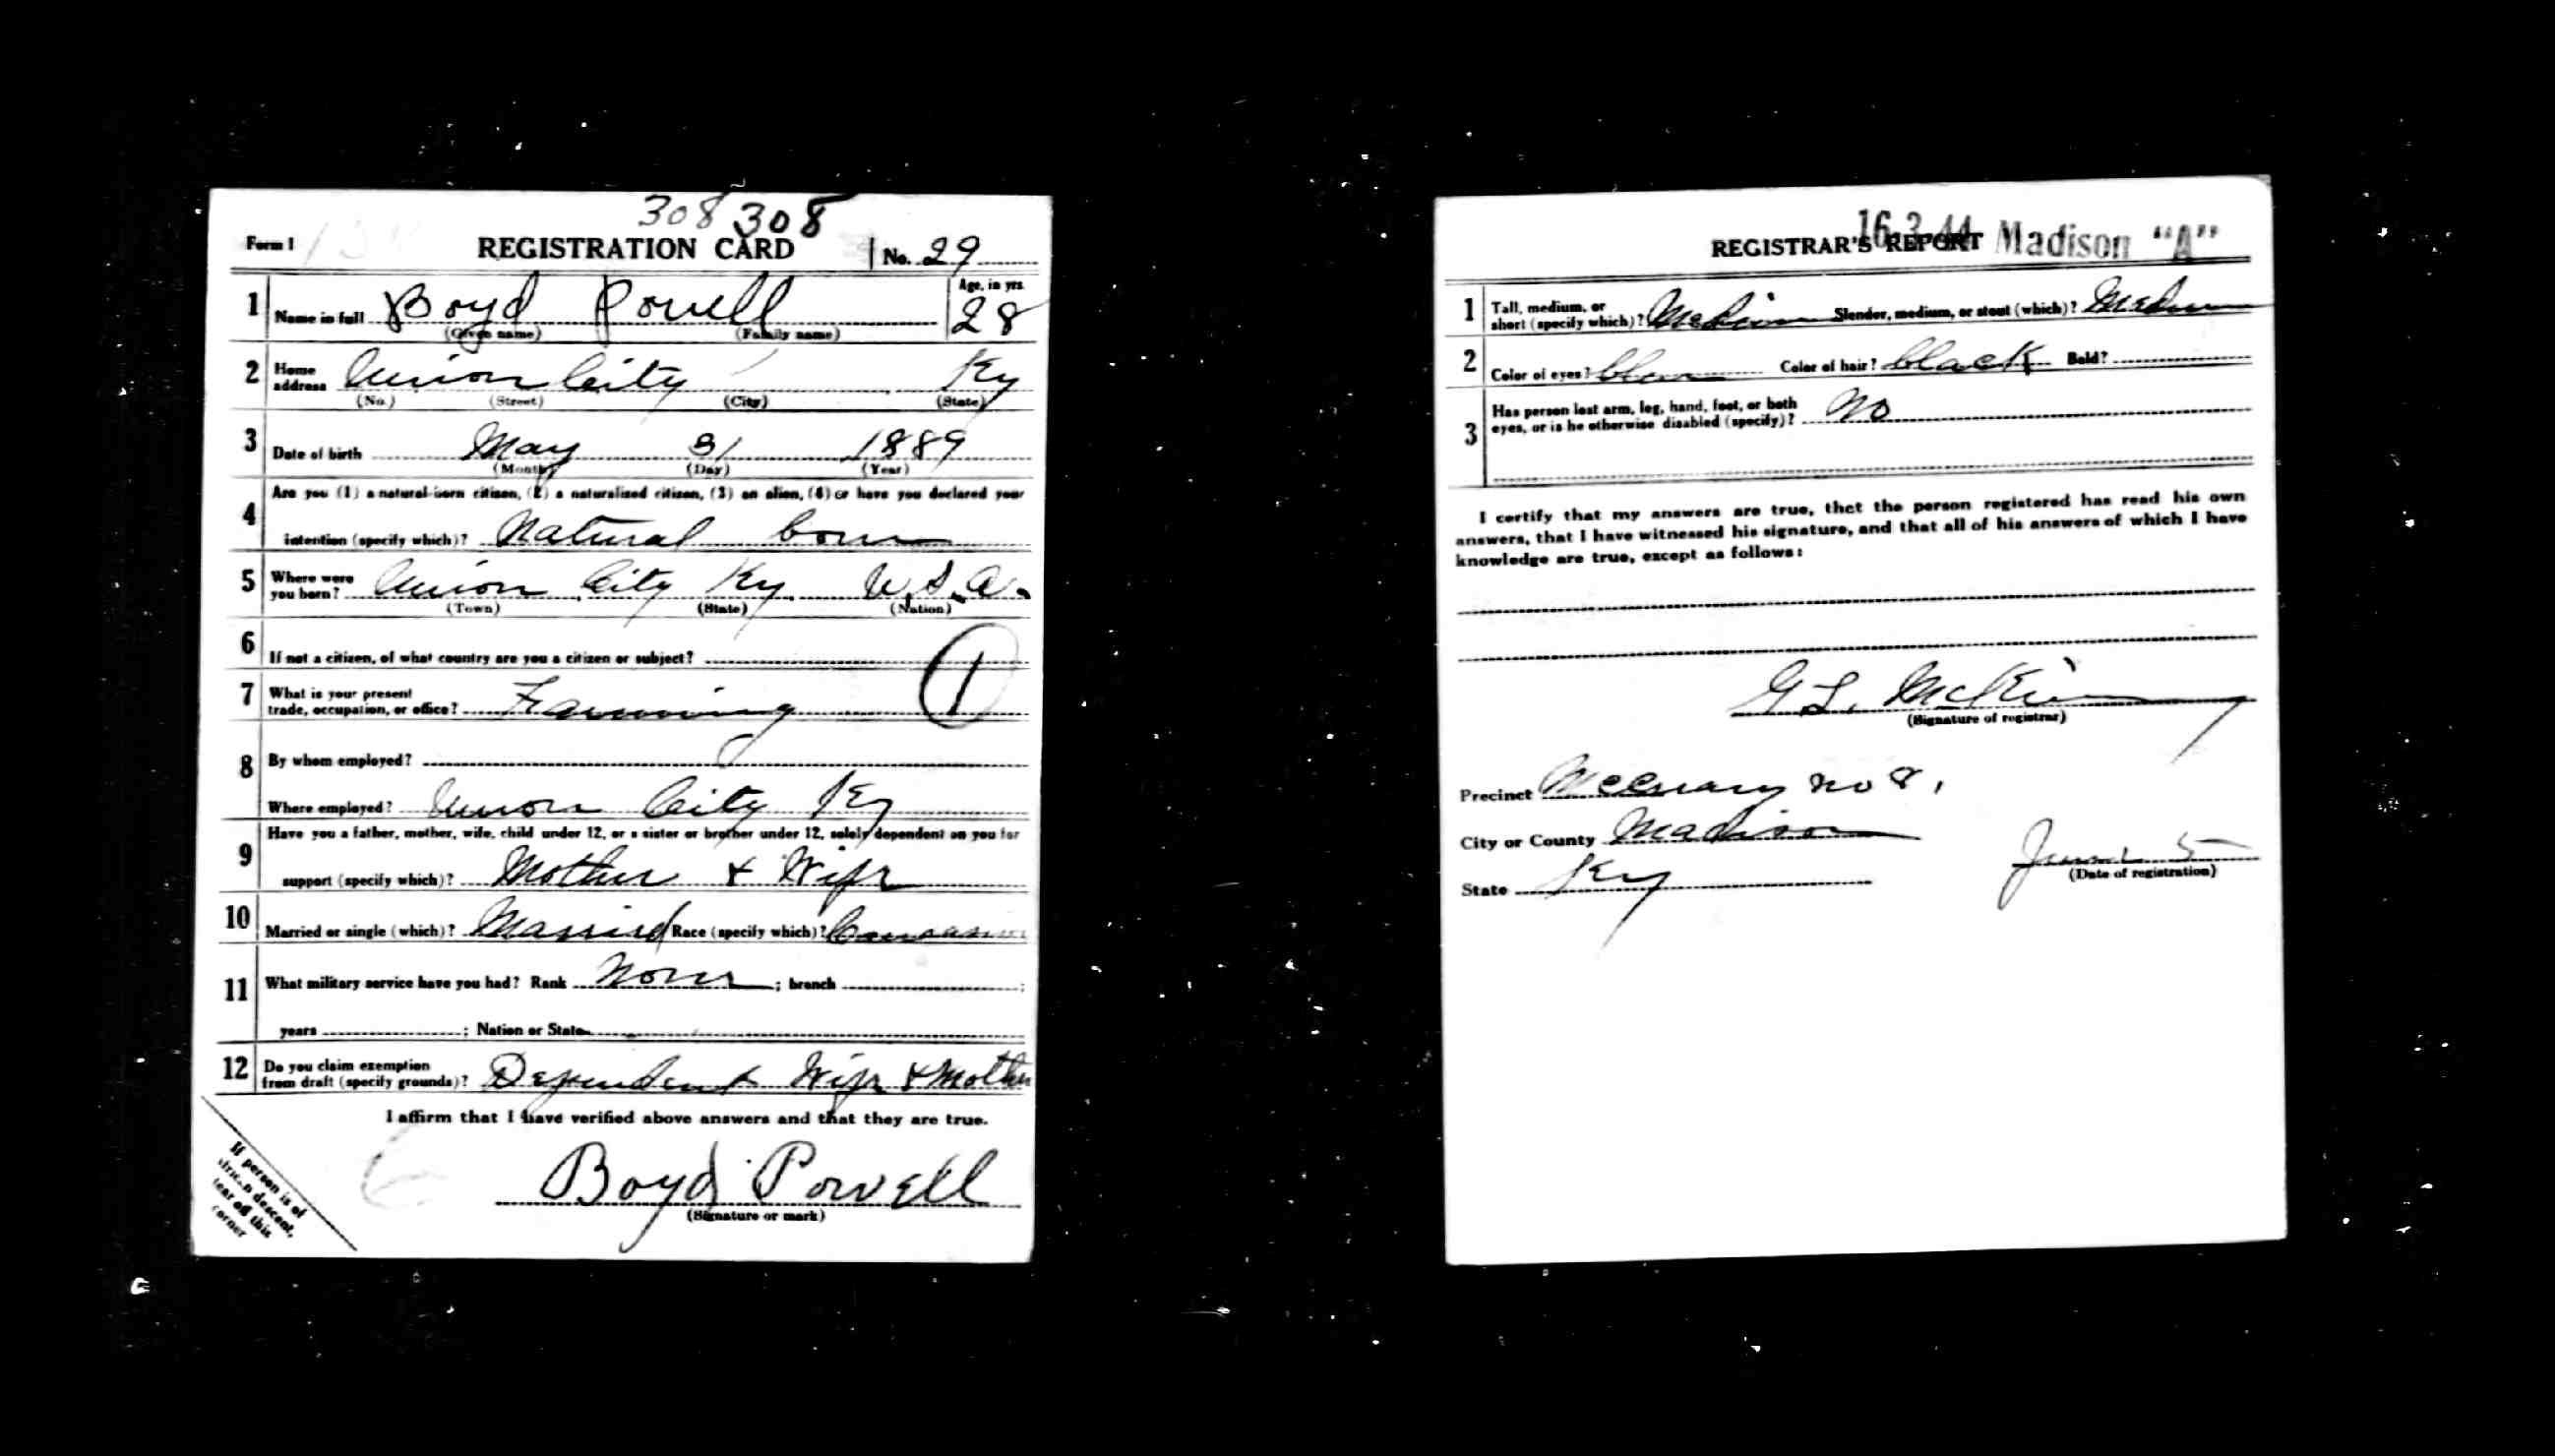 308 308
Form 1 REGISTRATION CARD No. 29
1 Name in full Boyd Powell Age, in yrs. 28
(Given name) (Family name)
2 Home address Union City Ky
(No.) (Street) (City) (State)
3 Date of birth May 31 1889
(Month) (Day) (Year)
4 Are you (1) a natural-born citizen, (2) a naturalized citizen, (3) an alien, (4) or have you declared your
intention (specify which)? Natural born
5 Where were you born? Union City Ky. U.S.A.
(Town) (State) (Nation)
6 If not a citizen, of what country are you a citizen or subject?
1
7 What is your present trade, occupation, or office? Farming
8 By whom employed?
Where employed? Union City Ky
9 Have you a father, mother, wife, child under 12, or a sister or brother under 12, solely dependent on you for
support (specify which)? Mother & Wife
10 Married or single (which)? Married Race (specify which)? Caucasian
11 What military service have you had? Rank None ; branch ;
years ; Nation or State
12 Do you claim exemption from draft (specify grounds)? Dependent Wife & Mother
I affirm that I have verified above answers and that they are true.
Boyd Powell
(Signature or mark)
If person is of
descent,
tear off this
corner
16-3-44 Madison "A"
REGISTRAR'S REPORT
1 Tall, medium, or short (specify which)? Medium Slender, medium, or stout (which)? Medium
2 Color of eyes? Color of hair? black Bald?
3 Has person lost arm, leg, hand, foot, or both
eyes, or is he otherwise disabled (specify)? No
I certify that my answers are true, that the person registered has read his own
answers, that I have witnessed his signature, and that all of his answers of which I have
knowledge are true, except as follows:
G L. McKinney
(Signature of registrar)
Precinct no 8.
City or County Madison
State Ky
June 5
(Date of registration)